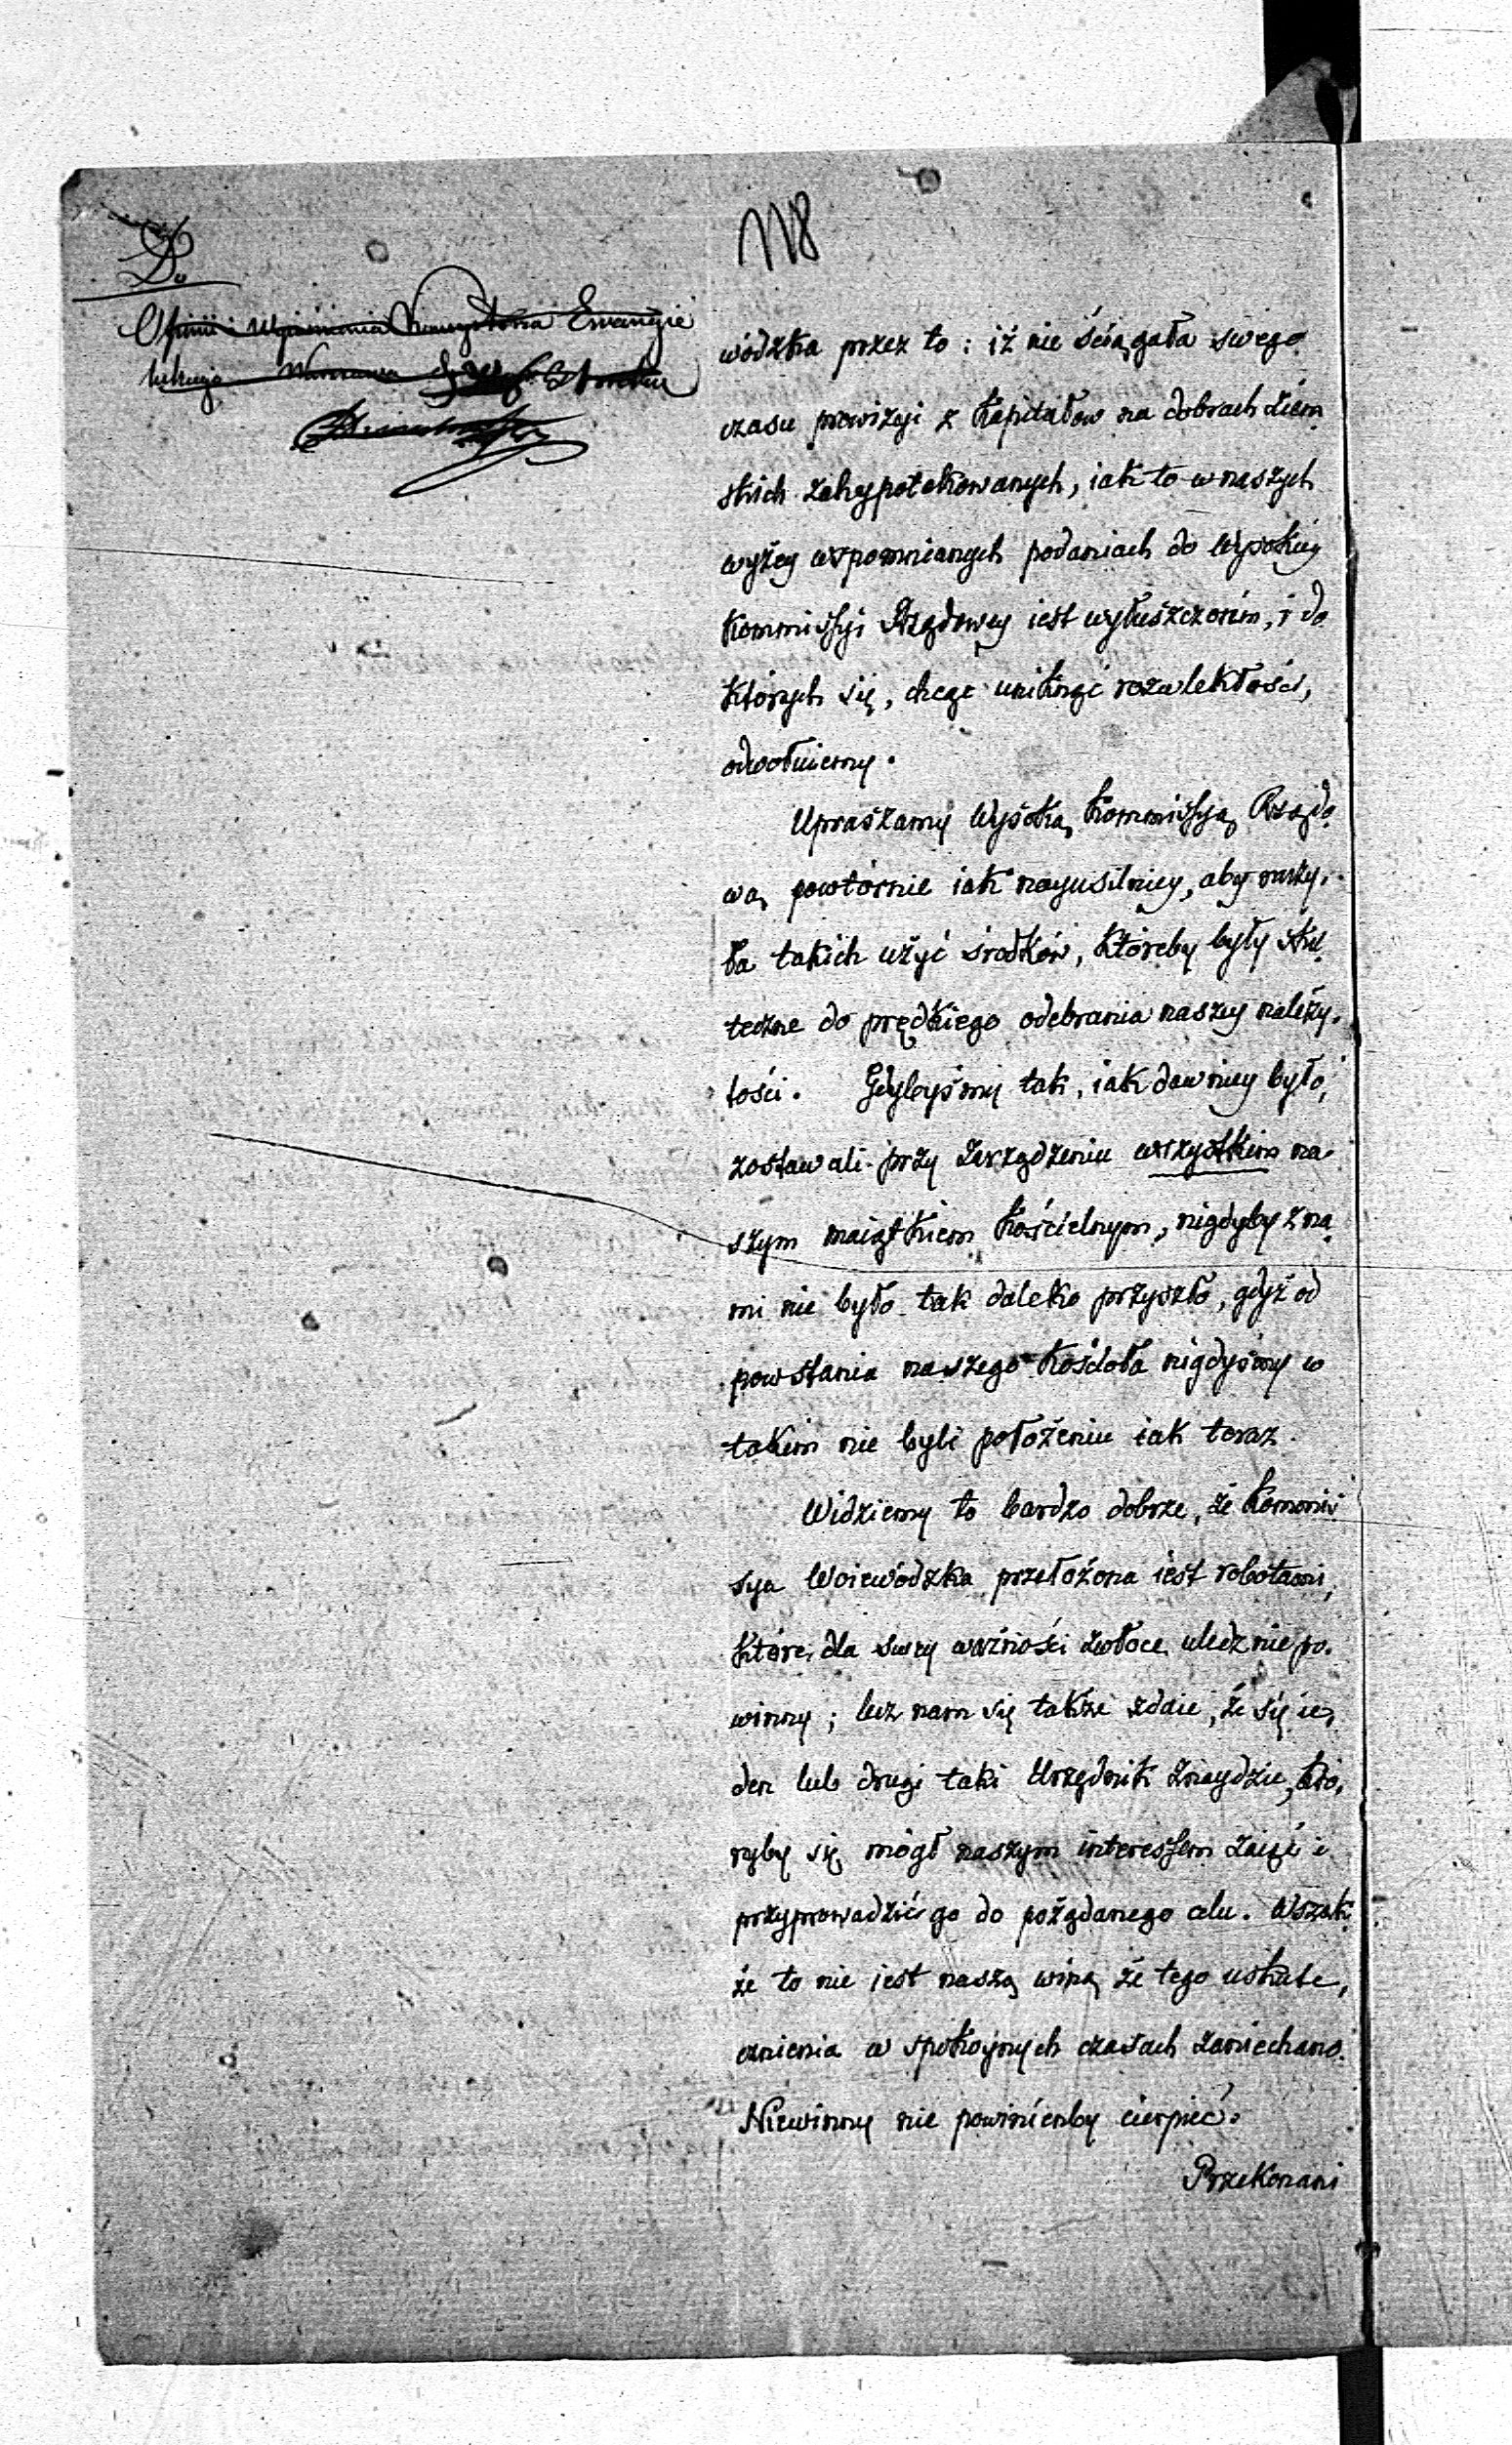 118
Do
Opinii Wyznania Ewangie
lickiego Warszawa
wódzka przez to: iż nie ściągała swego
czasu prowizyi z kapitałów na dobrach ziem
skich zahypotekowanych, iak to w naszych
wyżey wspomnianych podaniach do Wysokiey
Kommissyi Rządowey iest wyłuszczonem, i do
których się, chcąc uniknąć rozwlekłości,
odwołuiemy.
Upraszamy Wysoką Kommissyą Rządo
wą powtórnie iak nayusilniey, aby raczy,
ła takich użyć środków, któreby były sku
teczne do prędkiego odebrania naszey należy,
tości. Gdybyśmy tak, iak dawniey było,
zostawali przy zarządzeniu wszystkim na
szym maiątkiem kościelnym, nigdyby z na
mi nie było tak daleko przyszło, gdyż od
powstania naszego kościoła nigdyśmy w
takim nie byli położeniu iak teraz.
Widziemy to bardzo dobrze, że Kommis
sya Woiewódzka przełożona iest robotami,
które dla swey ważności zwłoce uledz nie po,
winny; lecz nam się także zdaie, że się ie,
den lub drugi taki Urzędnik znaydzie, któ,
ryby się mógł naszym interessem zaiąć i
przyprowadzić go do pożądanego celu. Wszak
że to nie iest naszą winą że tego uskute,
cznienia w spokoynych czasach zaniechano.
Niewinny nie powinienby cierpieć.
Przekonani